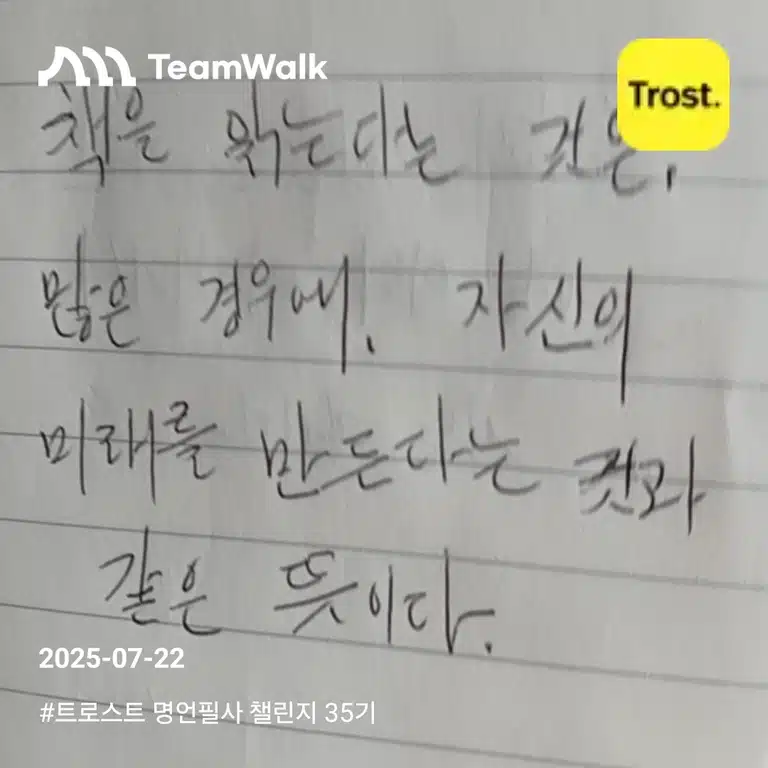 TeamWalk
Trost.
책을 읽는다는 것은,
많은 경우에, 자신의
미래를 만든다는 것과
같은 뜻이다.
2025-07-22
#트로스트 명언필사 챌린지 35기